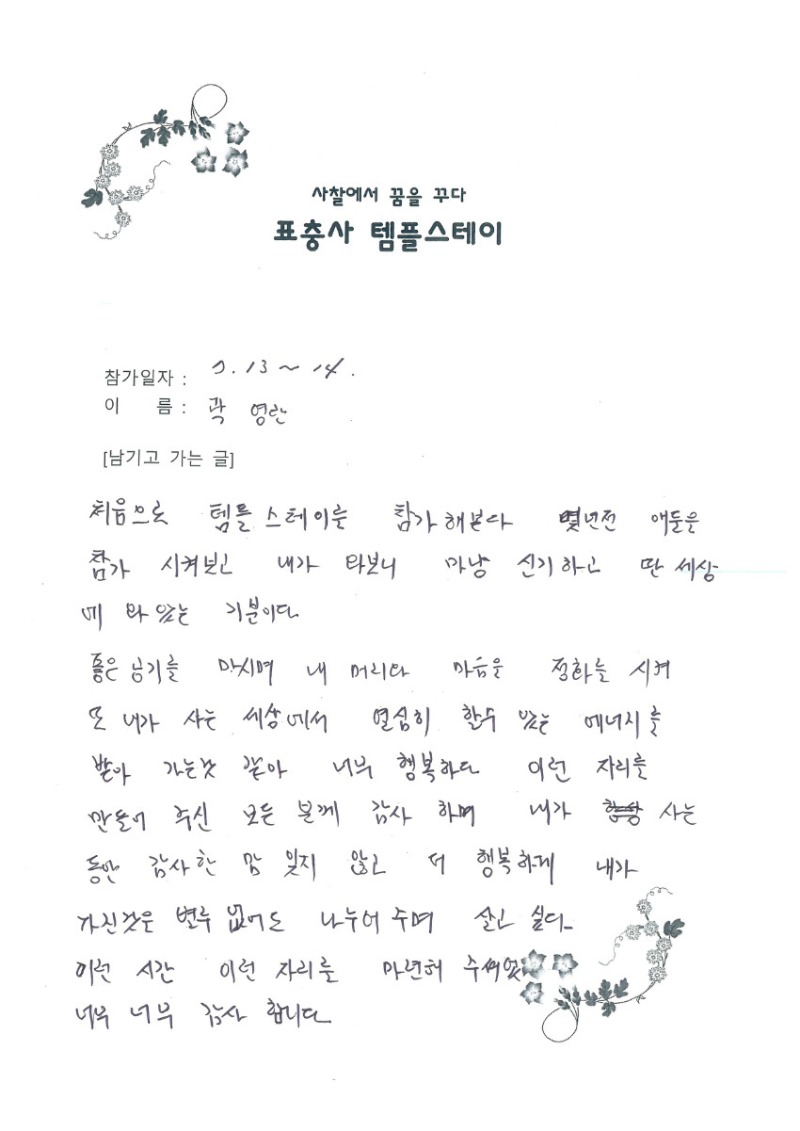 사찰에서 꿈을 꾸다
표충사 템플스테이
참가일자 : 7. 13 ~ 14.
이 름 : 곽 영란
[남기고 가는 글]
처음으로 템플스테이를 참가해본다 몇년전 애들을
참가 시켜보고 내가 와보니 마냥 신기하고 딴 세상
에 와 있는 기분이다
좋은 공기를 마시며 내 머리와 마음을 정화를 시켜
또 내가 사는 세상에서 열심히 할수 있는 에너지를
받아 가는것 같아 너무 행복하다 이런 자리를
만들어 주신 모든 분께 감사 하며 내가 사는
동안 감사한 맘 잊지 않고 더 행복하게 내가
가진것은 별루 없어도 나누어 주며 살고 싶다
이런 시간 이런 자리를 마련해
너무 너무 감사 합니다